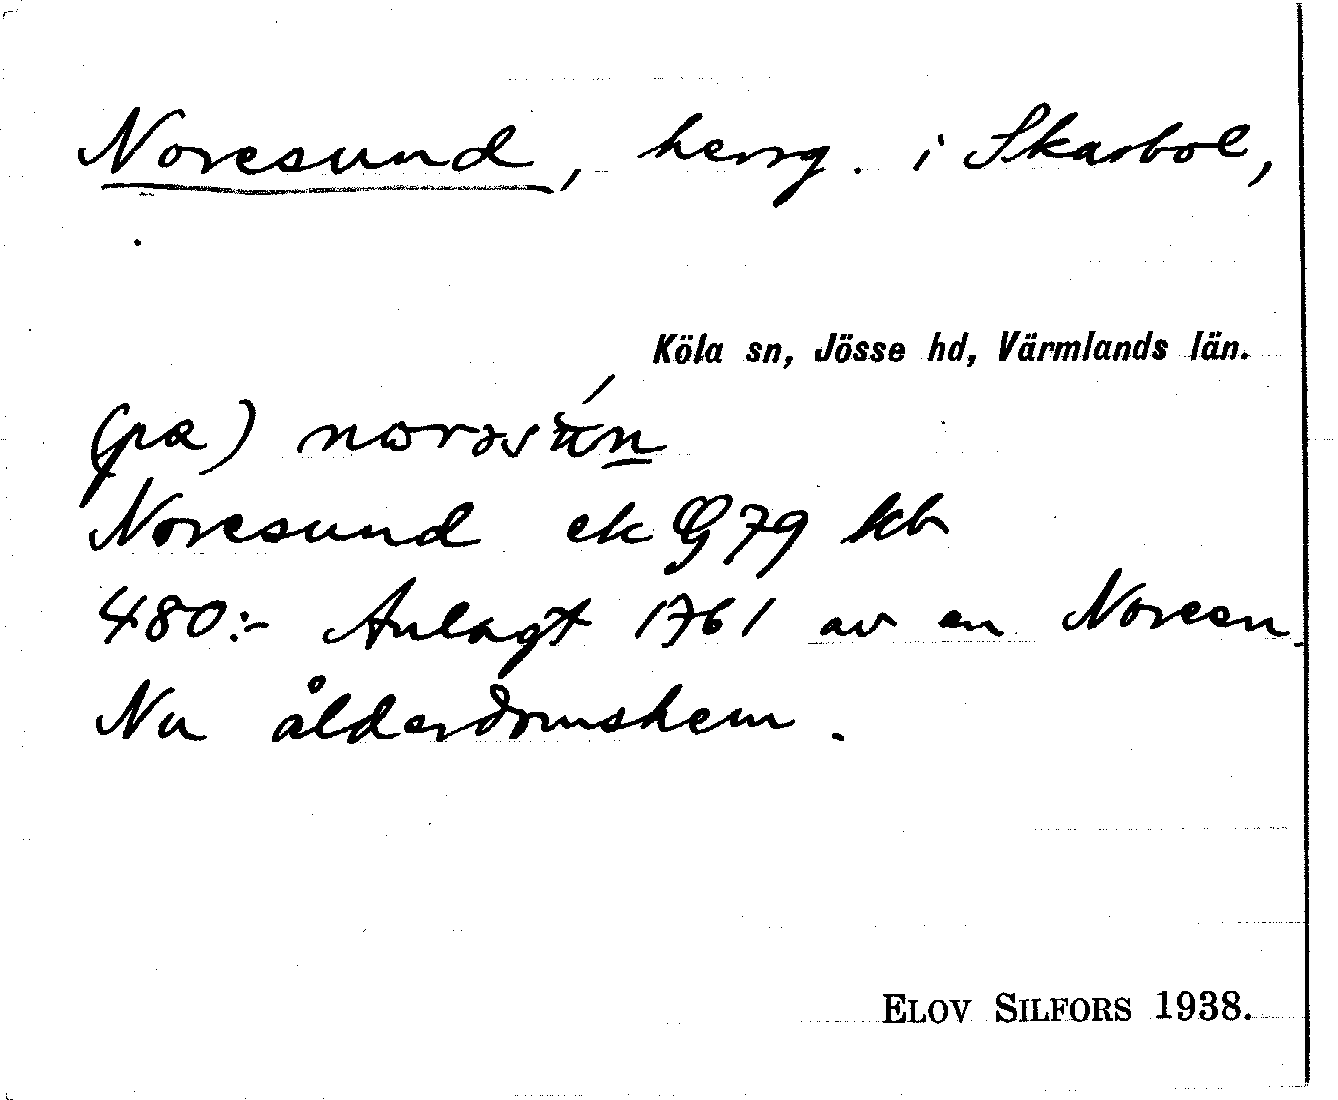 Noresund, herrg. i Skarbol,
Köla sn, Jösse hd, Värmlands län.
(pa)
Noresund ek G 79 kb
480:- Anlagt 1761 av en Noreen.
Nu ålderdomshem.
ELOV SILFORS 1938.